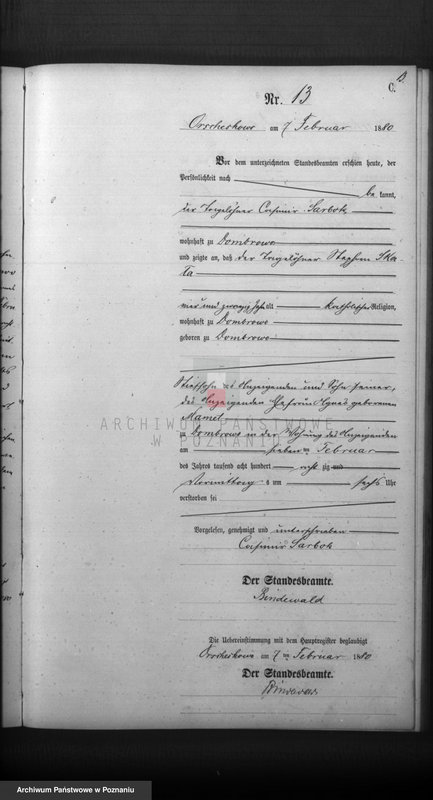 13.
C.
Nr. 13
Orscheskowo am 7 Februar 1880
Vor dem unterzeichneten Standesbeamten erschien heute, der
Persönlichkeit nach
be kannt,
der Tagelöhner Casimir Sarbok
wohnhaft zu Dombrowo
und zeigte an, daß der Tagelöhner Stephan Ska-
ta
vier und zwanzig Jahr alt katholischer Religion,
wohnhaft zu Dombrowo
geboren zu Dombrowo
Stiefsohn des Anzeigenden und Sohn seiner,
des Anzeigenden Ehefrau Agnes geborenen
Mamet
zu Dombrowo in der Wohnung des Anzeigenden
am sieben ten Februar
des Jahres tausend acht hundert acht zig und
Vormittags um sechs Uhr
verstorben sei
Vorgelesen, genehmigt und unterschrieben
Casimir Sarbok
Der Standesbeamte.
Bindewald
Die Uebereinstimmung mit dem Hauptregister beglaubigt
Orscheskowo am 7 ten Februar 1880
Der Standesbeamte.
ARCHIWUM PAŃSTWOWE
W POZNANIU
Archiwum Państwowe w Poznaniu